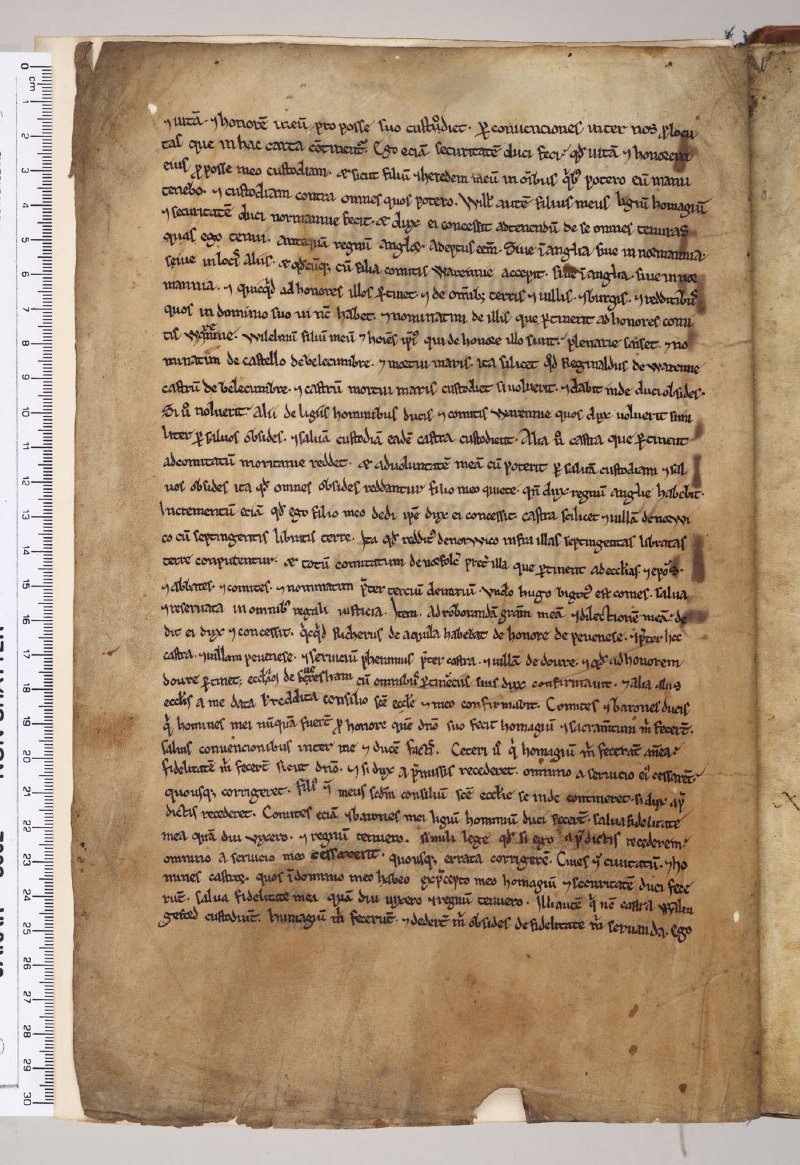 ⁊ uitā. ⁊ honorē meū pro posse suo custodiet. ꝑ conuenciones inter nos ꝓlocu
tas que in hac carta ꝯtinent᷑. Ego eciā securitatē duci feci qđ uitā ⁊ honorem
eius ꝓ posse meo custodiam. & sicut filiū ⁊ heredem meū in oībus qb; potero eū manu
tenebo. ⁊ custodiam contra omnes quos potero. Will̄s autē filius meus ligiū homagiū
⁊ securitatē duci normannie fecit. & dux ei concessit ad tenendū de se omnes tenuras
quas ego tenui. antequā regnū anglie adeptus eēm. Siue ī anglia siue in normannia.
seiue in locꝭ aliis. & qđcūq; cū filia comitis Warennie accepit. siue ī anglia. siue in nor
mannia. ⁊ quicqđ ad honores illos ꝑtinet. ⁊ de om̄ib; terris ⁊ uillis. ⁊ burgis. ⁊ redditibꝰ
quos in dominio suo in nc̄ habet. ⁊ nominatim de illis. que ꝑtinent ad honores comi
tis Warennie. Wilelmū filiū meū ⁊ hoīes ip̄iꝰ qui de honore illo sunt. plenarie saiset. ⁊ no
minatim de castello de belecumbre. ⁊ moetui maris. ita silicet qđ Reginaldus de Warenne
castrū de belecumbre. ⁊ castrū mortui maris custodiet si uoluerit. ⁊ dabit inde duci obsides.
Si ū noluerit. Alii de ligiis hominibus ducis ⁊ comitis Warennie quos dux uoluerit simi
liter ꝑ saluos obsides. ⁊ saluā custodiā eadē castra custodient. Alia ū castra que ꝑtinent
ad comitatū moritanie reddet. & ad uoluntatē meā cū poterit ꝑ saluā custodiam ⁊ sal
uos obsides ita qđ omnes obsides reddantur filio meo quiete. qn̄ dux regnū anglie habebit.
Incrementū eciā qđ ego filio meo dedi ip̄e dux ei concessit. castra scilicet ⁊ uillā de norwi
co cū septingentis libratis terre. Ita qđ redditꝰ de norwico infra illas septingentas libratas
terre conputentur. & totū comitatum de norfolc̄ preṫ illa que ꝑtinent ad eccl̄ias ⁊ ep̄os.
⁊ abbates. ⁊ comites. ⁊ nominatim p̄ter terciū denariū. vnde hugo bigotꝰ est comes. salua
⁊ reseruata in omnibꝰ regali iusticia. Item. ad roborandā gr̄am meā ⁊ dilectionē meā. de
dit ei dux ⁊ concessit. qcqđ Richerus de aquila habebat de honore de peuenese. ⁊ p̄ter hec
castra. ⁊ uillam peuenese. ⁊ seruiciū phenmus p̄ter castra. ⁊ uillā de doure. ⁊ qđ ad honorem
doure ꝑtinet; eccl̄iā de feuresham cū omnibꝰ ꝑtinēciis suis dux confirmauit. ⁊ alia aliis
eccl̄iis a me data ul̄ reddita consilio sc̄e eccl̄e ⁊ meo confirmabit. Comites ⁊ barones ducis
q̇ homines mei nūquā fuerūt ꝓ honore quē dn̄o suo fecit homagiū ⁊ sacramtum m̄ fecerūt.
saluis conuencionibus inter me ⁊ ducē factꝭ. Ceteri ū q̇ homagiū m̄ fecerunt antea.
fidelitatē m̄ fecerūt sicut dn̄o. ⁊ si dux a p̄missis recederet. omnino a seruicio eiꝰ cessarēt.
quousq; corrigeret. filiꝰ q̄ meus scdm̄ consiliū sc̄e eccl̄ie se inde contineret. si dux a p̄
dictis recederet. Comites eciā ⁊ barones mei ligiū hominiū duci fecerūt. salua fidelitate
mea quā diu uixero. ⁊ regnū tenuero. simili lege qđ si ego a p̄dictis recederem.
omnino a seruicio meo cessarent. quousq; errata corrigerē. Ciues q̄ ciuitatū. ⁊ ho
mines castroꝝ. quos ī dominio meo habeo ex p̄cepto meo homagiū ⁊ securitatē duci fece
rūt. salua fidelitate mea quā diu uixero ⁊ regnū tenuero. Illi autē q̇ nc̄ castra Walin
geford custodiunt. humagiū m̄ fecerūt. ⁊ dederūt m̄ obsides de fidelitate m̄ seruanda. Ego